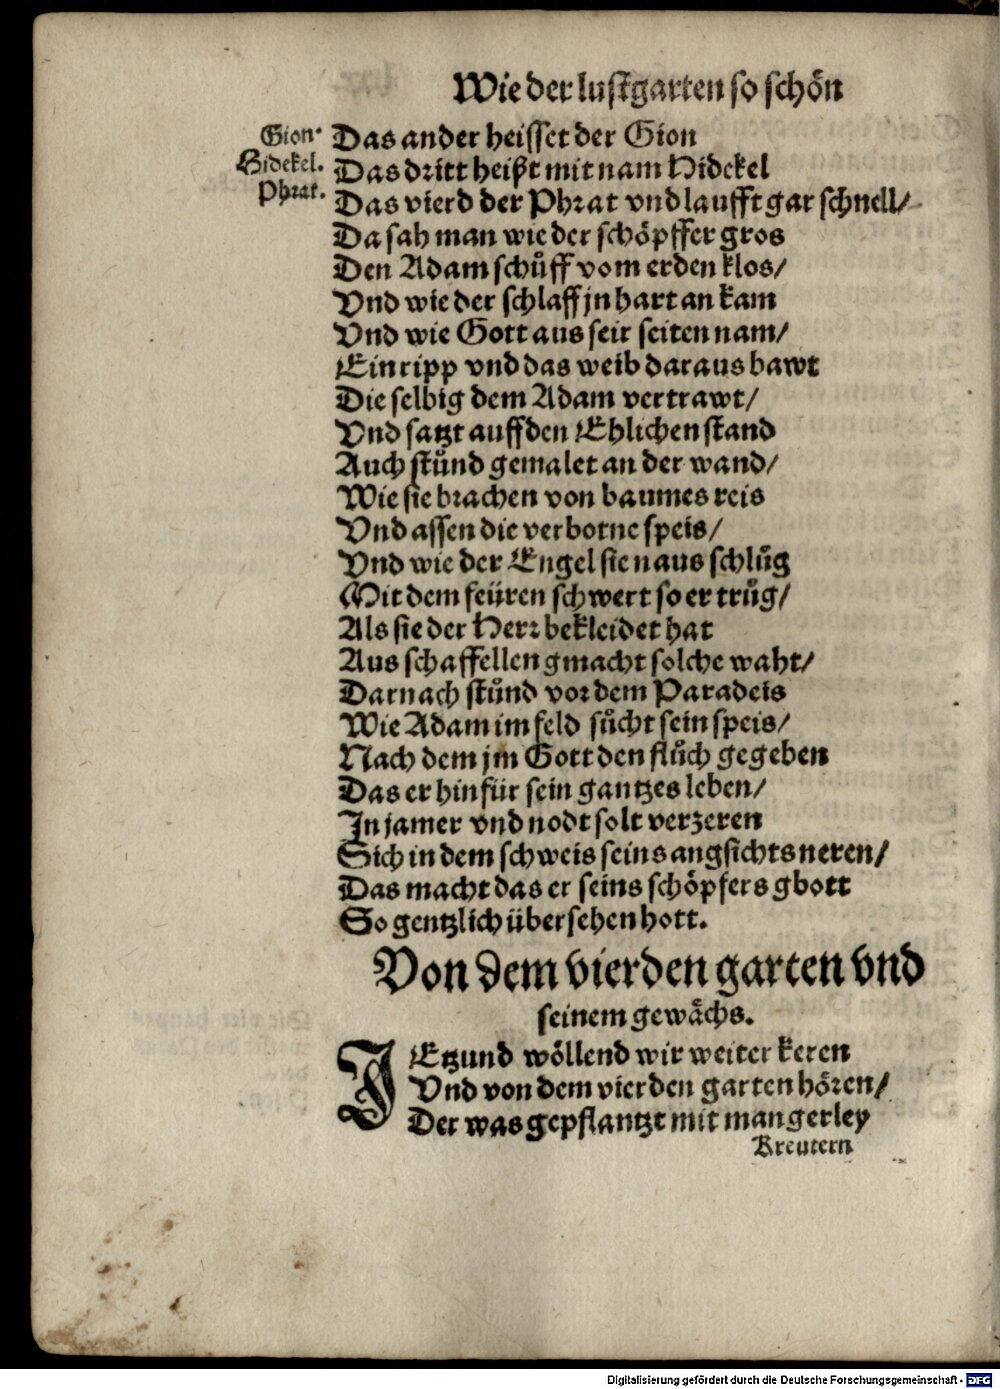 Wie der lustgarten so schön
Gion.
Hidekel.
Phrat.
Das ander heisset der Gion
Das dritt heißt mit nam Hidekel
Das vierd der Phrat vnd laufft gar schnell/
Da sah man wie der schöpffer gros
Den Adam schůff vom erden klos/
Vnd wie der schlaff jn hart an kam
Vnd wie Gott aus seir seiten nam/
Ein ripp vnd das weib daraus bawt
Die selbig dem Adam vertrawt/
Vnd satzt auff den Ehlichen stand
Auch stůnd gemalet an der wand/
Wie sie brachen von baumes reis
Vnd assen die verbotne speis/
Vnd wie der Engel sie naus schlůg
Mit dem feüren schwert so er trůg/
Als sie der Herr bekleidet hat
Aus schaffellen gmacht solche waht/
Darnach stůnd vor dem Paradeis
Wie Adam im feld sůcht sein speis/
Nach dem jm Gott den flůch gegeben
Das er hinfür sein gantzes leben/
In jamer vnd nodt solt verzeren
Sich in dem schweis seins angsichts neren/
Das macht das er seins schöpfers gbott
So gentzlich übersehen hott.
Von dem vierden garten vnd
seinem gewächs.
IEtzund wöllend wir weiter keren
Vnd von dem vierden garten hören/
Der was gepflantzt mit mangerley
Kreutern
Digitalisierung gefördert durch die Deutsche Forschungsgemeinschaft - DFG